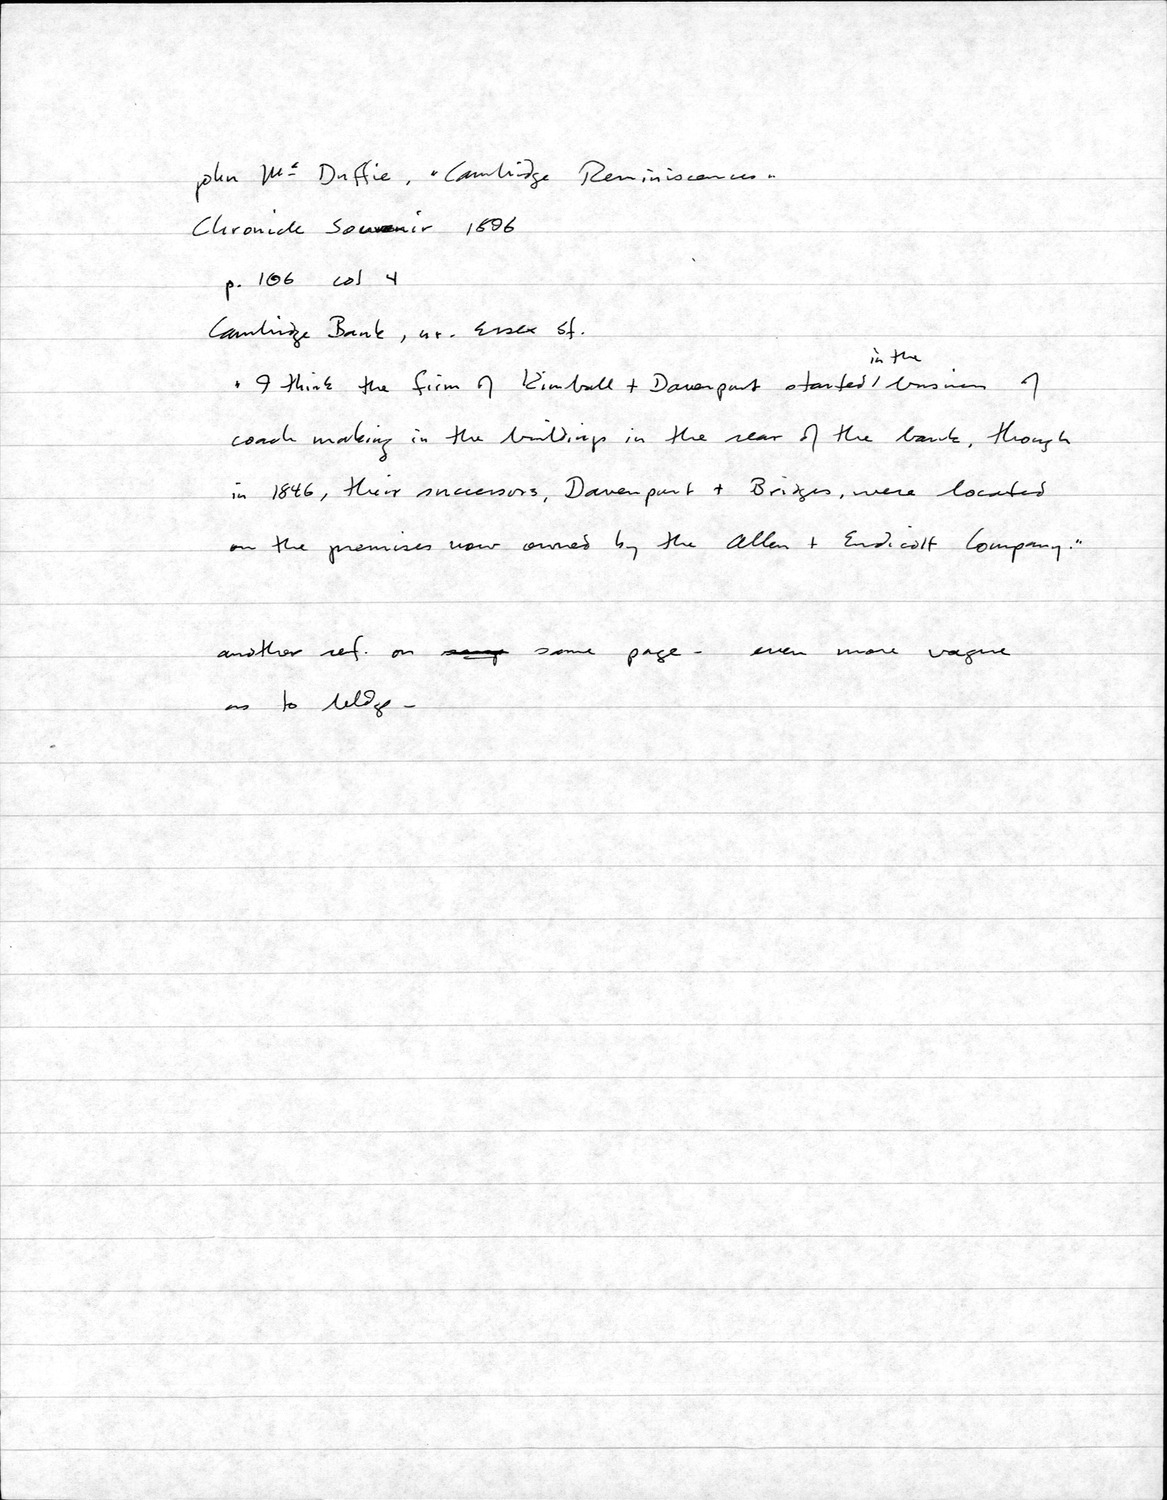 John Mc Duffie, "Cambridge Reminiscences"
Chronicle Souvenir 1896
p. 106 col 4
Cambridge Bank, nr. Essex St.
in the
"I think the firm of Kimball + Davenport started / business of
coach making in the buildings in the rear of the bank, though
in 1846, their successors, Davenport + Bridges, were located
on the premises now owned by the Allen + Endicott Company."
another ref. on same page - even more vague
as to bldg -